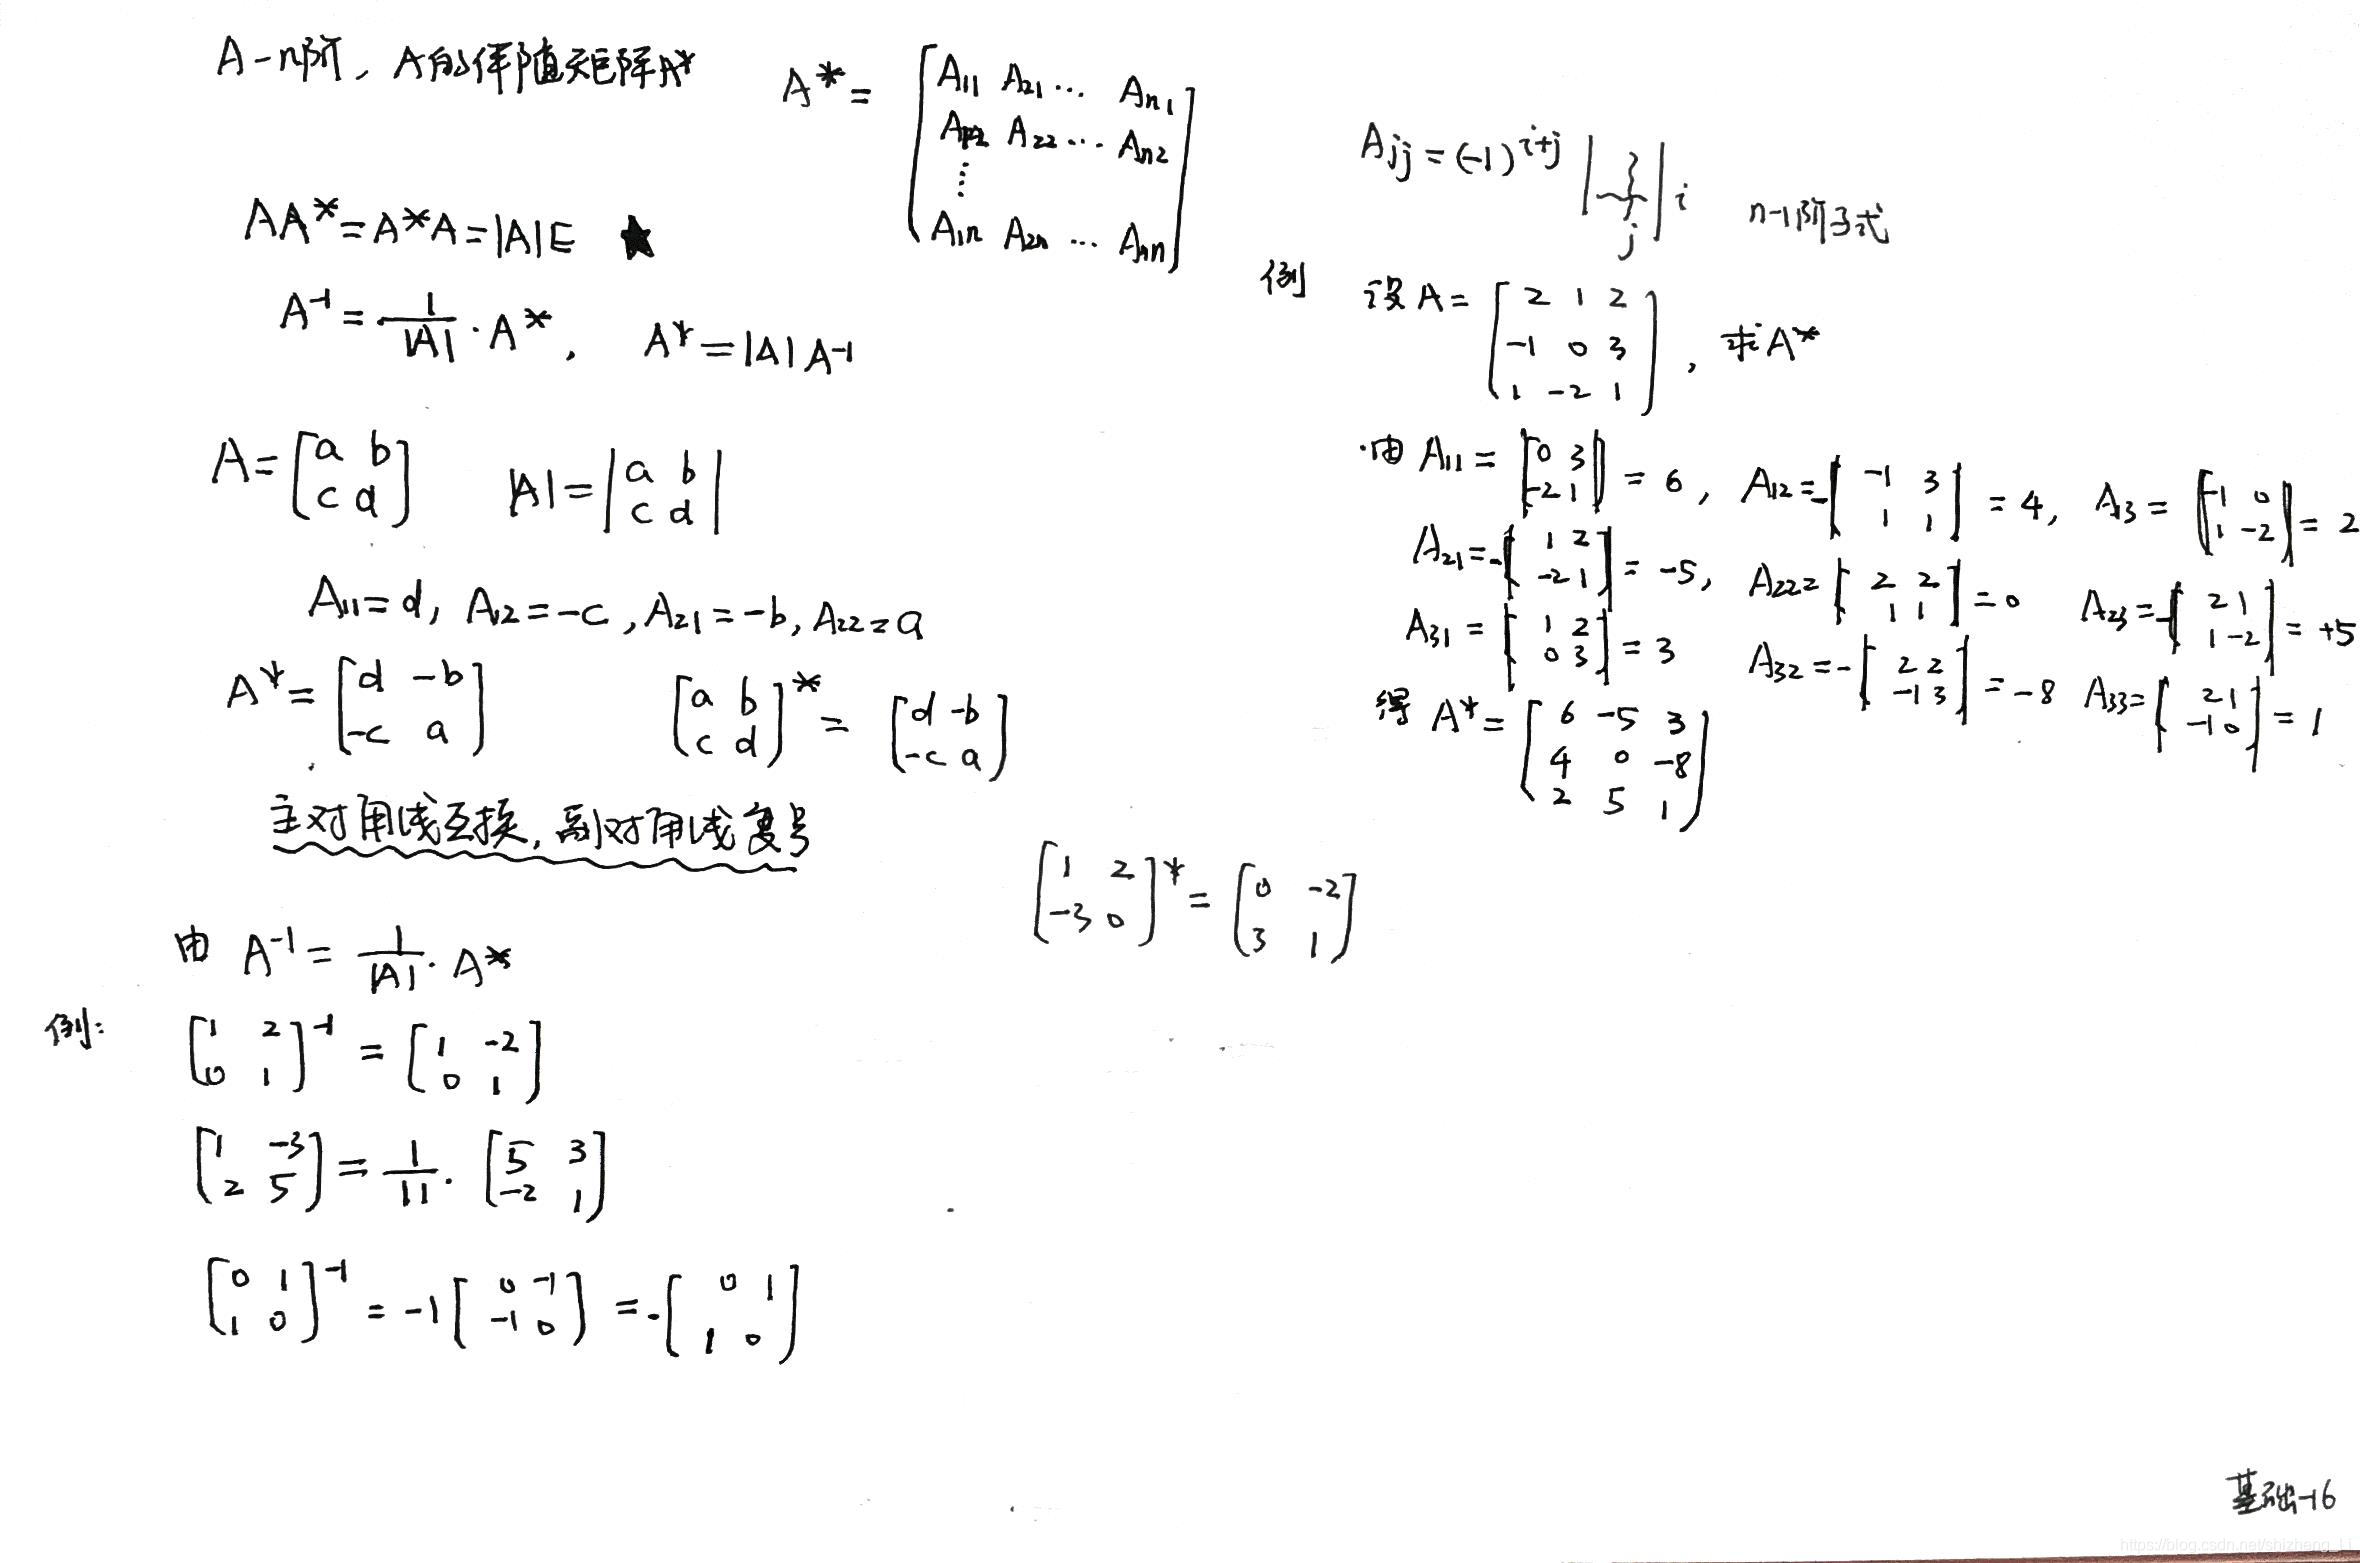 A-n阶, A的伴随矩阵A*
A* = [A11 A21 ... An1
A12 A22 ... An2
⋮
A1n A2n ... Ann]
AA* = A*A = |A|E ★
A⁻¹ = 1/|A| · A*, A* = |A|A⁻¹
A = [a b
c d]
|A| = |a b
c d|
A11 = d, A12 = -c, A21 = -b, A22 = a
A* = [d -b
-c a]
[a b
c d]* = [d -b
-c a]
主对角线互换, 副对角线变号
[1 2
-3 0]* = [0 -2
3 1]
由 A⁻¹ = 1/|A| · A*
例:
[1 2
0 1]⁻¹ = [1 -2
0 1]
[1 -3
2 5] = 1/11 · [5 3
-2 1]
[0 1
1 0]⁻¹ = -1[0 -1
-1 0] = -[0 1
1 0]
Aij = (-1)^i+j | | i
j
n-1阶子式
例 设A = [2 1 2
-1 0 3
1 -2 1], 求A*
由 A11 = |0 3
-2 1| = 6, A12 = -|-1 3
1 1| = 4, A13 = |-1 0
1 -2| = 2
A21 = -|1 2
-2 1| = -5, A22 = |2 2
1 1| = 0 A23 = -|2 1
1 -2| = +5
A31 = |1 2
0 3| = 3 A32 = -|2 2
-1 3| = -8 A33 = |2 1
-1 0| = 1
得 A* = [6 -5 3
4 0 -8
2 5 1]
基础-16